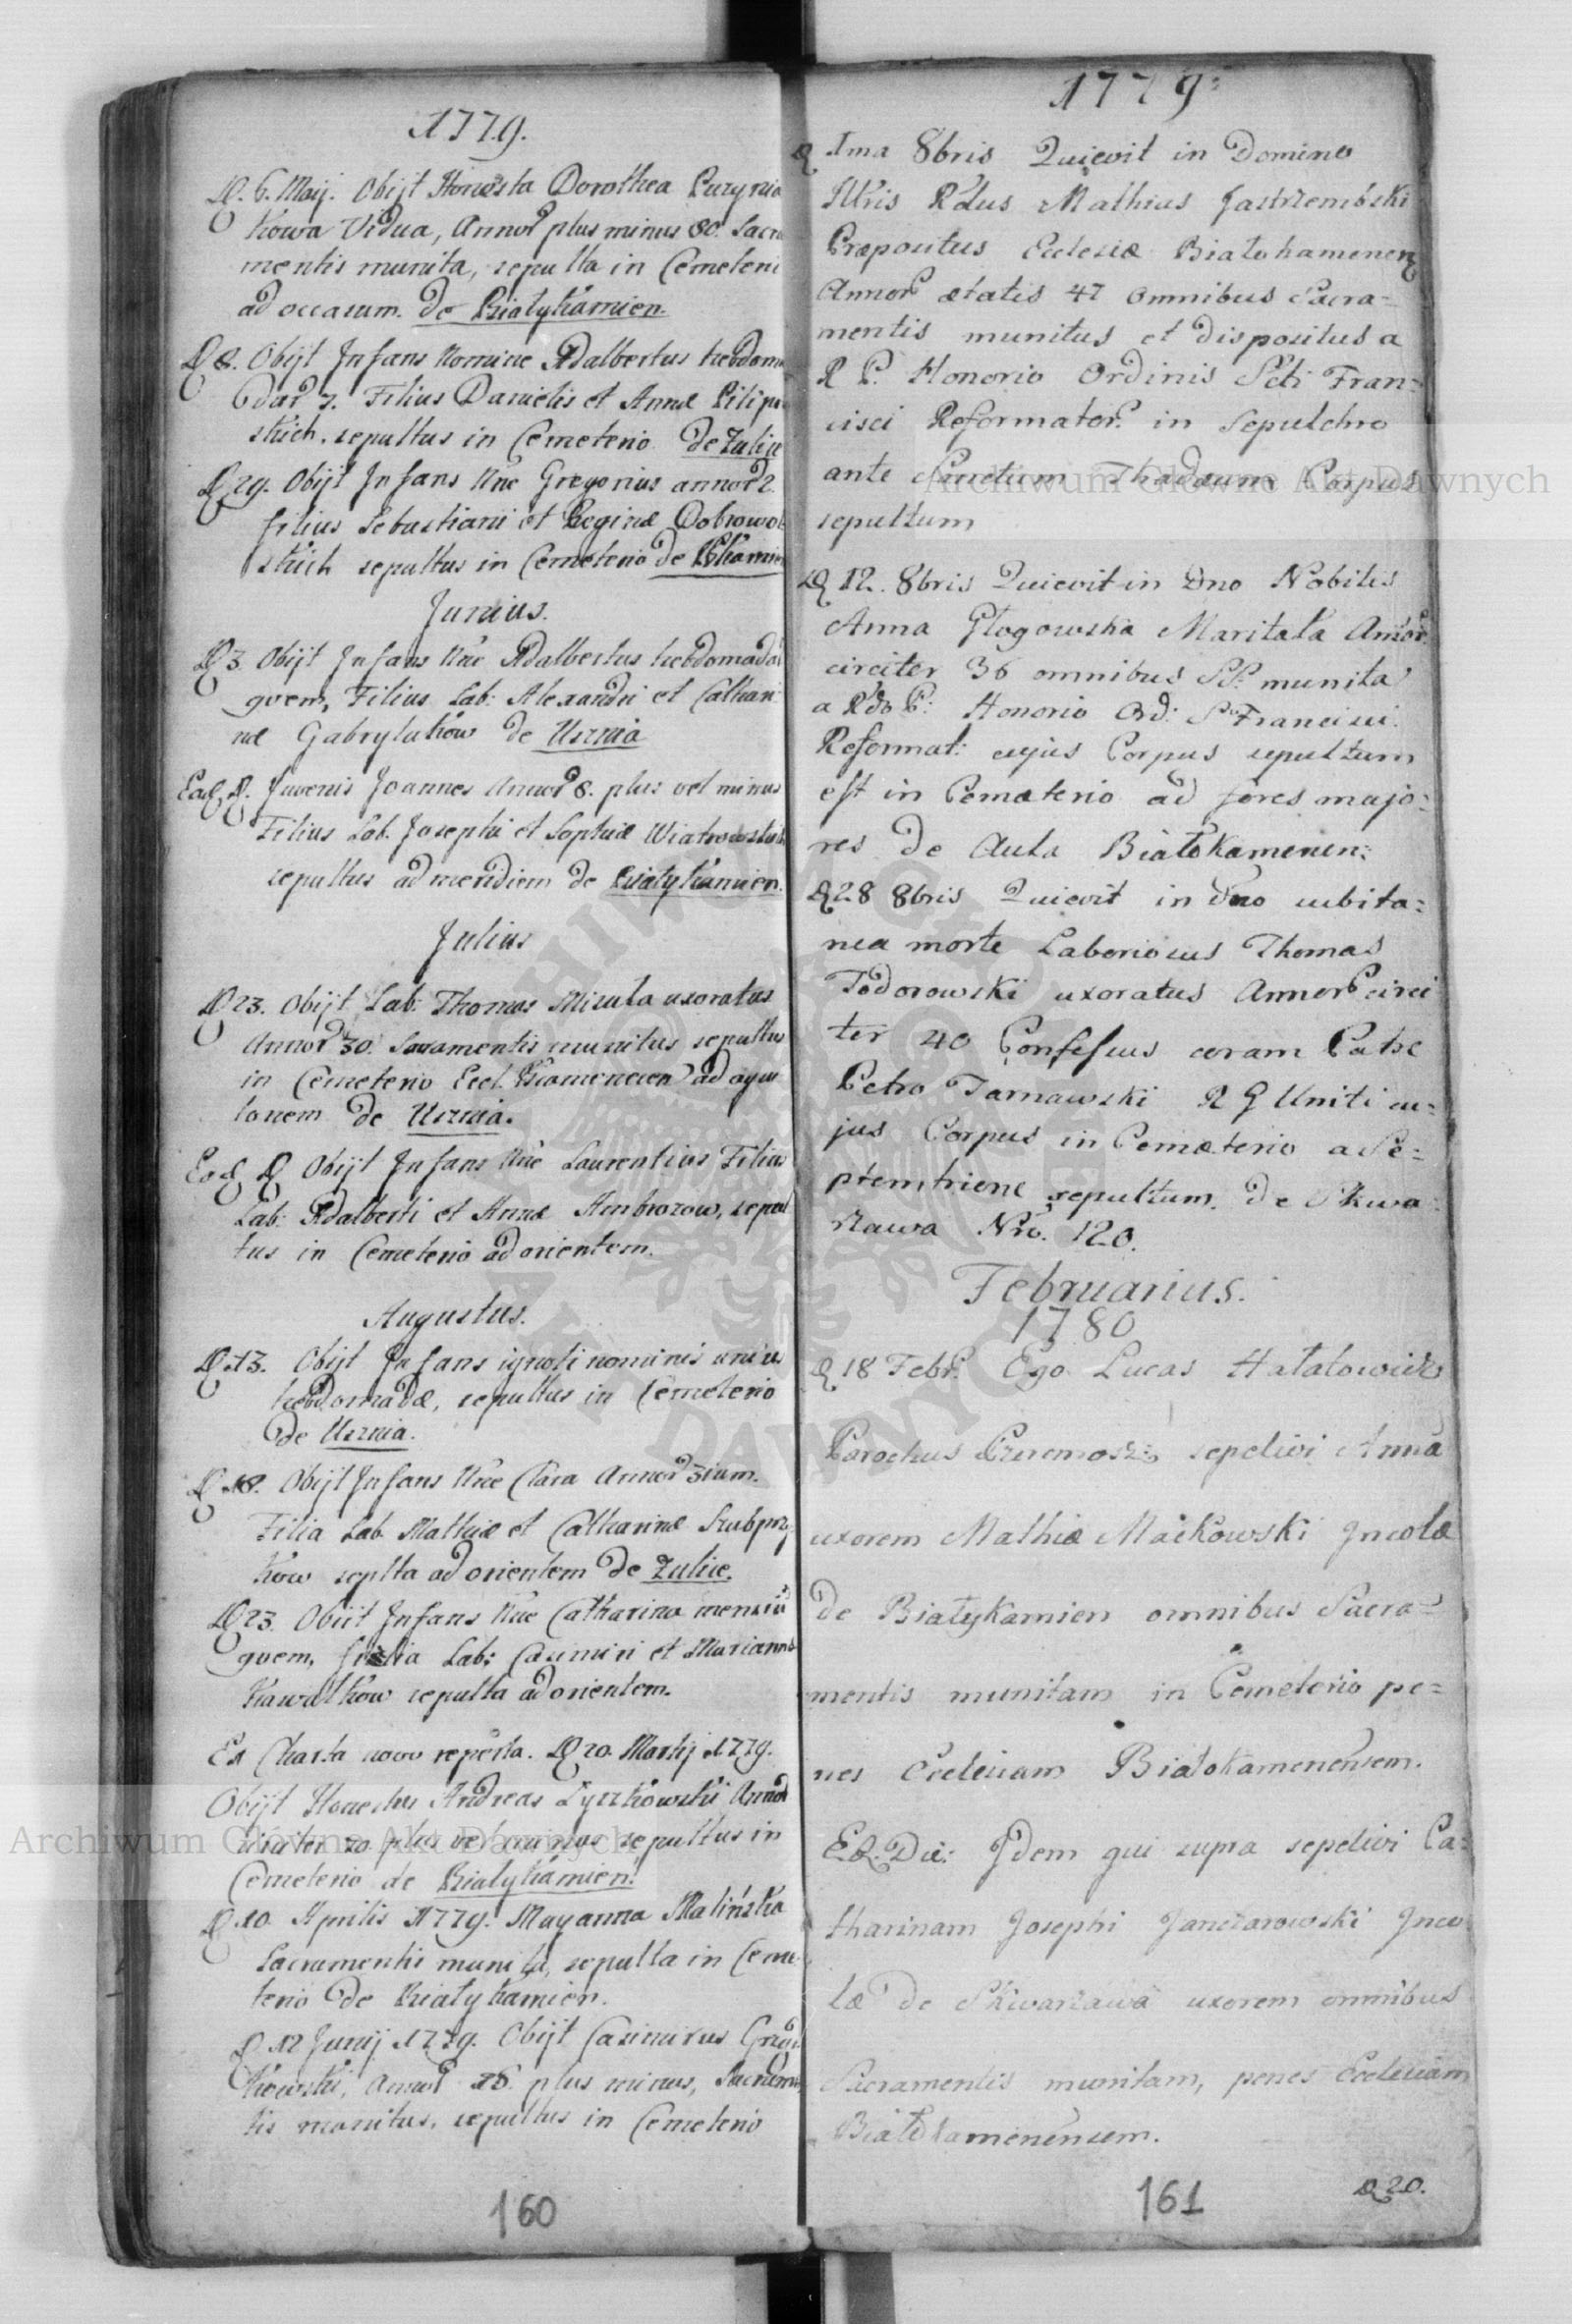 1779.
D. 6. Maij. Obijt Honesta Dorothea
kowa Vidua, Annor plus minus 80. Sacra
mentis munita, sepulta in Cemeteri
ad occasum. de Białykamien.
D 8. Obijt Infans Nomine Adalbertus hebdoma
dar 7. Filius Danielis et Annæ
skich. sepultus in Cemeterio de Żulice
D 29. Obijt Infans Nne Gregorius annor 2.
filius Sebastiani et Reginæ Dobrowol
skich sepultus in Cemeterio de BKamien
Junius.
D 3. Obijt Infans Nne Adalbertus hebdomadar
quem, Filius Lab: Alexandri et Cathari
næ Gabrylukow de Usznia
Eod. D. Juvenis Joannes Annor 8. plus vel minus
Filius Lab. Josephi et Sophiæ
sepultus ad meridiem de Białykamien.
Julius
D 23. Obijt Lab: Thomas Mizula uxoratus
Annor 30. Sacramentis munitus sepultus
in Cemeterio Eccl. ad aqui
lonem de Usznia.
Eod D Obijt Infans Nne Laurentius Filius
Lab: Adalberti et Annæ Ambrozow, sepul
tus in Cemeterio ad orientem.
Augustus.
D. 13. Obijt Infans ignoti nominis unius
hebdomadæ, sepultus in Cemeterio
de Usznia.
D. 18. Obijt Infans Nne Clara Annor 3ium.
Filia Lab. Mathiæ et Catharinæ
kow seplta ad orientem de Żulice.
D 23. Obiit Infans Nne Catharina mensiu
quem, filia Lab: Casimiri et Mariannæ
Kawalkow sepulta ad orientem.
Ex Charta novo reperta. D 20. Martij 1779.
Obijt Honestus Andreas Łyszkowski Annor
circiter 70 plus vel minus sepultus in
Cemeterio de Białykamien.
D 10. Aprilis 1779. Maryanna Malińska
Sacramentis munita, sepulta in Ceme
terio de Białykamien.
D 12 Junij 1779. Obijt Casimirus
kowski, Annor plus minus, Sacramen
tis munitus, sepultus in Cemeterio
160
1779:
D Ima 8bris Quievit in Domino
Illris Rdus Mathias Jastrzembski
Præpositus Ecclesiæ Białokamenen
Annor ætatis 47 omnibus Sacra=
mentis munitus et dispositus a
R P. Honorio Ordinis Scti Fran=
cisci Reformator. in Sepulchro
ante Sanctum Thadæum Corpus
sepultum
D 12. 8bris Quievit in Dno Nobilis
Anna Głogowska Maritata Annor
circiter 36 omnibus SS: munita
a Rdo P: Honorio Ord: S. Francisci
Reformat: cujus Corpus sepultum
est in Cemæterio ad fores majo=
res de Aula Białokamenen:
D 28 8bris Quievit in Dno subita=
nea morte Laboriosus Thomas
Todorowski uxoratus Annor circi
ter 40 Confessus coram Patre
Petro Tarnawski R G Uniti cu=
jus Corpus in Cemæterio a Se=
ptemtrione sepultum. de Skwa
rzawa Nro. 120.
Februarius.
1780
D 18 Febr. Ego Lucas Hatalowicz
Parochus sepelivi Anna
uxorem Mathiæ Maćkowski Incolæ
de Białykamien omnibus Sacra=
mentis munitam in Cemeterio pe=
nes Ecclesiam Białokamenensem.
E.D. Die: Idem qui supra sepelivi Ca=
tharinam Josephi Janczarowski Inco
læ de Skwarzawa uxorem omnibus
Sacramentis munitam, penes Ecclesiam
Białokamenensem.
D 20.
161
Archiwum Główne Akt Dawnych
Archiwum Główne Akt Dawnych